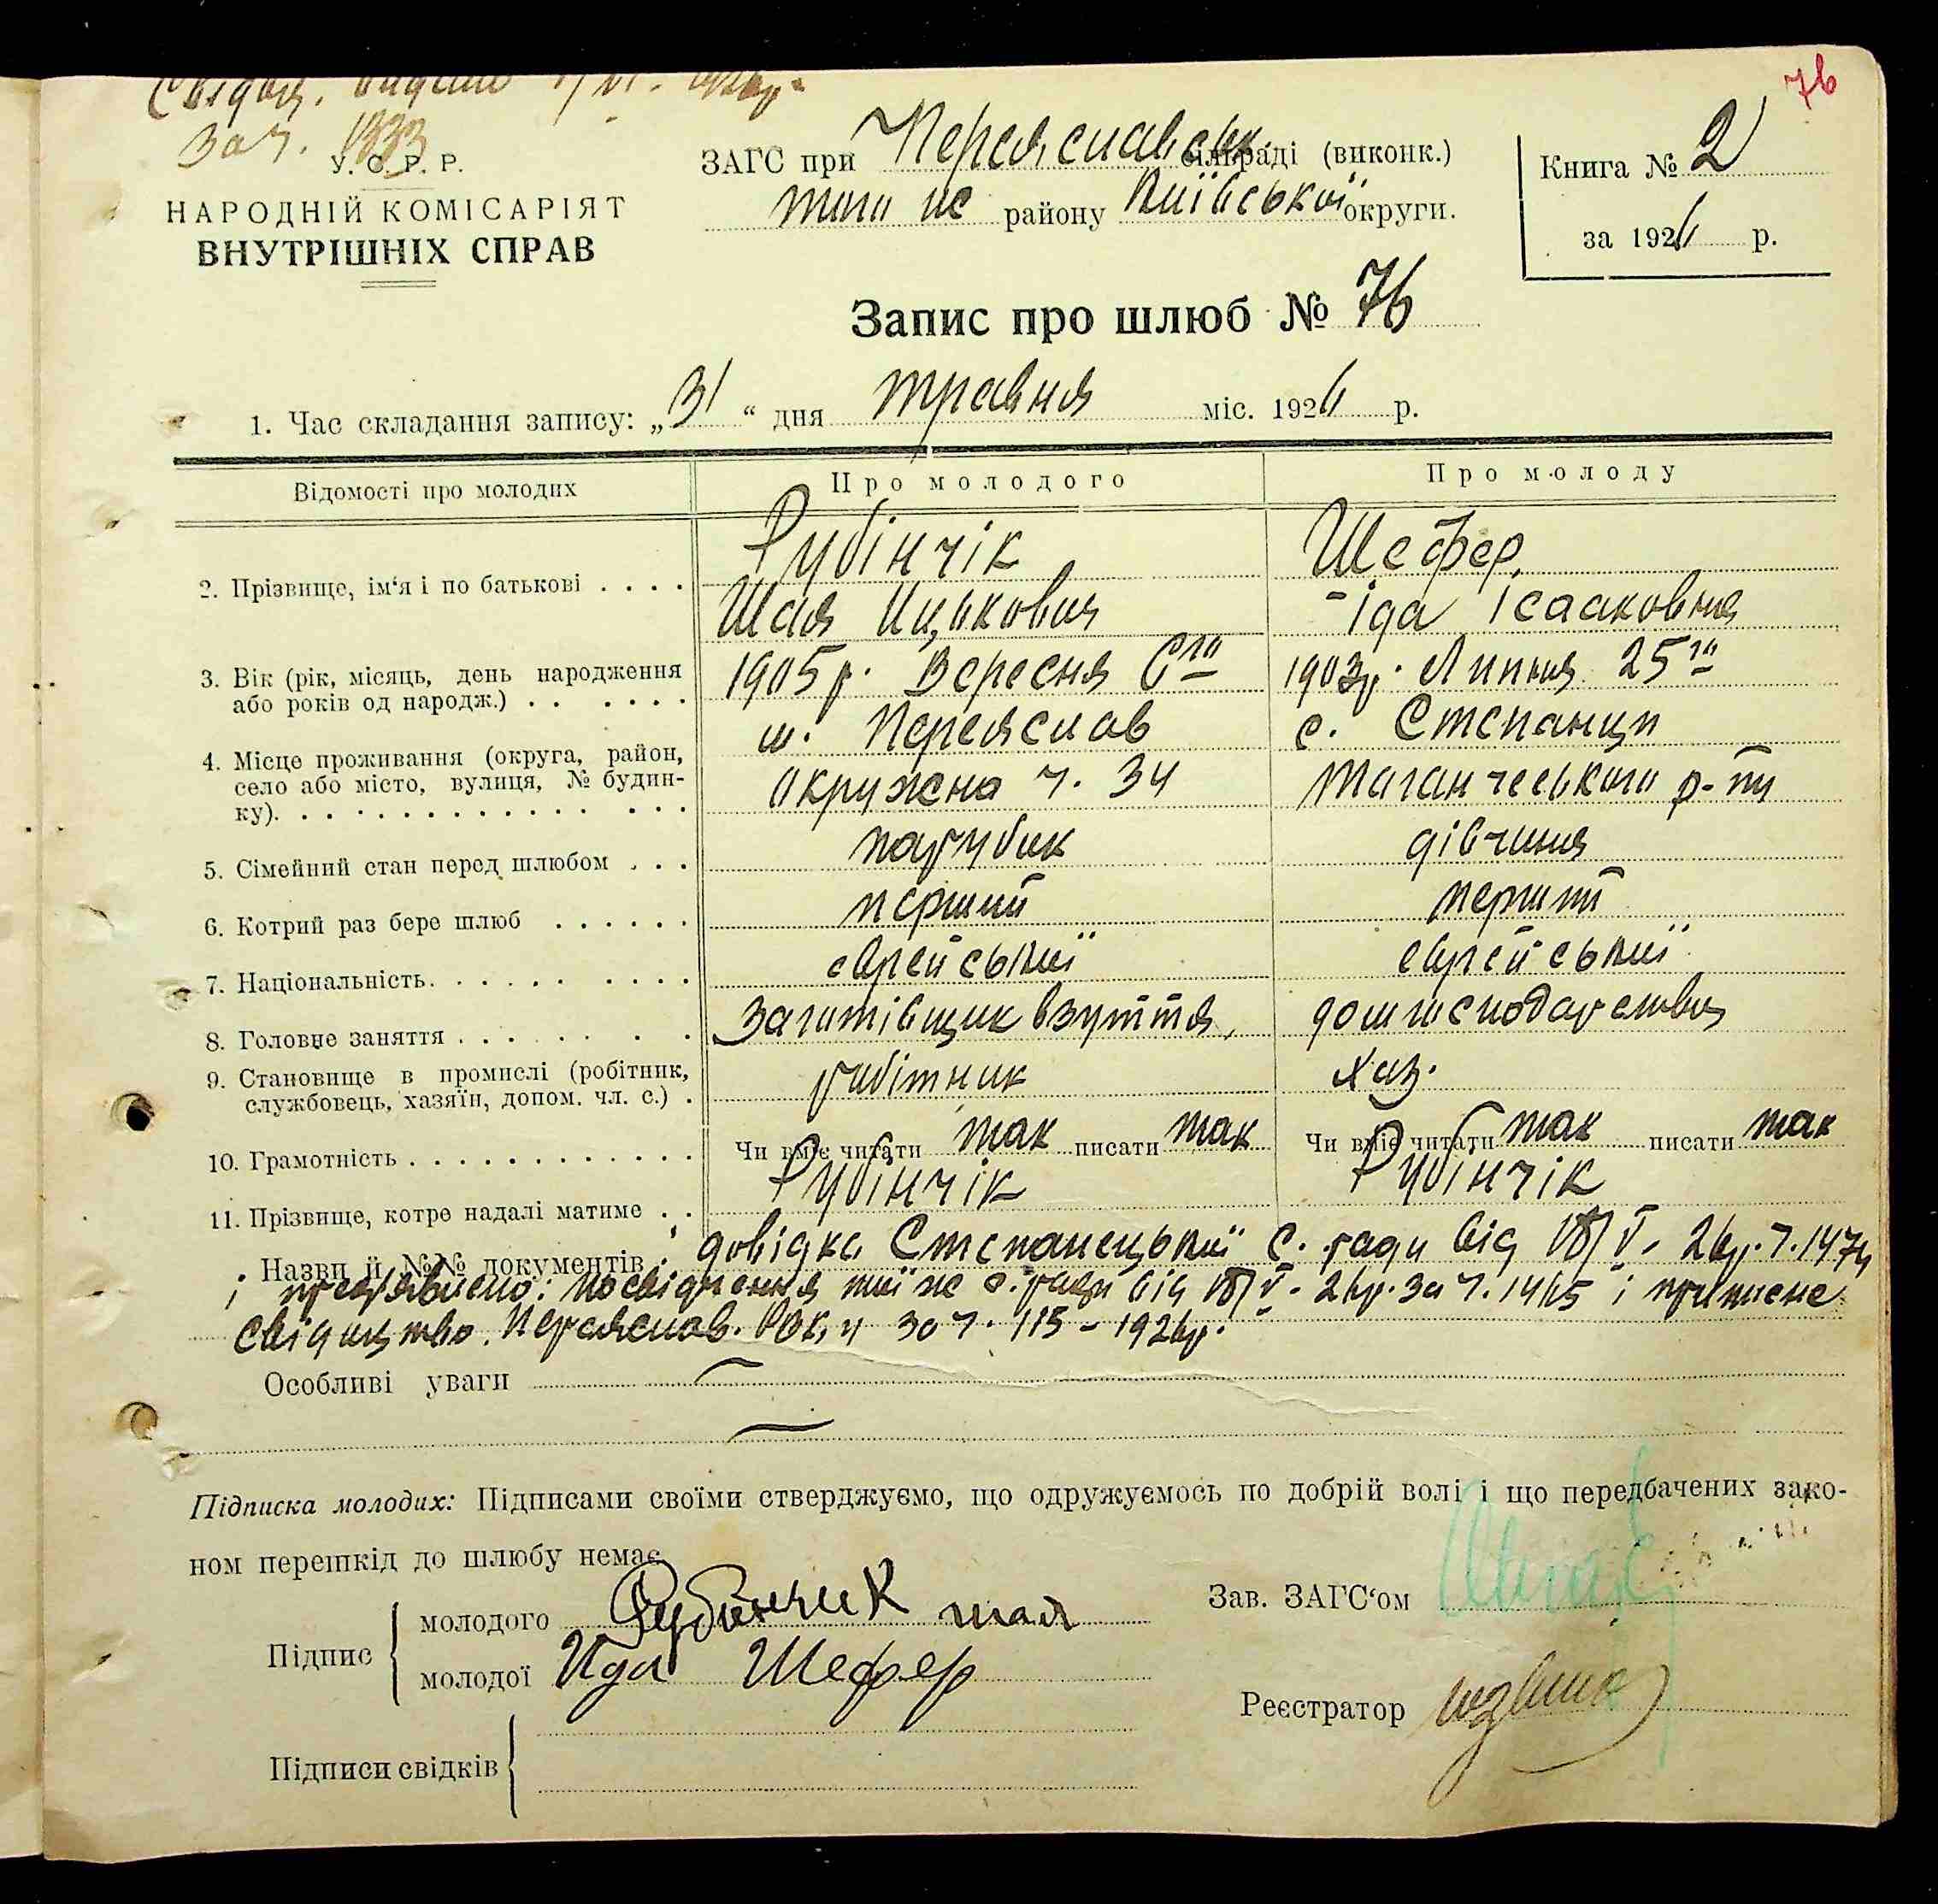 76
Свідоц. видано
за ч. 1833
У. С. Р. Р.
НАРОДНІЙ КОМІСАРІЯТ
ВНУТРІШНІХ СПРАВ
ЗАГС при Переяславськ. сільраді (виконк.)
того ж району Київської округи.
Книга № 2
за 1926 р.
Запис про шлюб № 76
1. Час складання запису: „31“ дня травня міс. 1926 р.
Відомості про молодих
Про молодого
Про молоду
2. Прізвище, ім‘я і по батькові . . . .
Рубінчік
Шая Ицькович
Шефер,
Іда Ісааковна
3. Вік (рік, місяць, день народження
або років од народж.) . . . . . .
1905 р. Вересня 6го
1903 р. Липня 25го
4. Місце проживання (округа, район,
село або місто, вулиця, № будин-
ку). . . . . . . . . . . . . . . .
м. Переяслав
Окружна ч. 34
с. Степанци
Таганчеського р-ну
5. Сімейний стан перед шлюбом . . .
парубок
дівчина
6. Котрий раз бере шлюб . . . . . .
перший
перший
7. Національність. . . . . . . . . .
єврейської
єврейської
8. Головне заняття . . . . . . . .
Заготівщик взуття,
дом. господарства
9. Становище в промислі (робітник,
службовець, хазяїн, допом. чл. с.) .
робітник
хаз.
10. Грамотність . . . . . . . . . . . . .
Чи вміє читати так писати так
Чи вміє читати так писати так
11. Прізвище, котре надалі матиме . .
Рубінчік
Рубінчік
Назви й №№ документів: довідка Степанецької с. ради від V. 26 р. ч. 1474
пред'явлено: посвідчення тої ж с. ради від V - 26 р. за ч. 1465 і приписне
свідоцтво. Переяслав. за ч. 115 - 1926 р.
Особливі уваги
Підписка молодих: Підписами своїми стверджуємо, що одружуємось по добрій волі і що передбачених зако-
ном перешкід до шлюбу немає
Підпис
молодого Рубинчик шая
молодої Ида Шефер
Зав. ЗАГС‘ом
Реєстратор
Підписи свідків